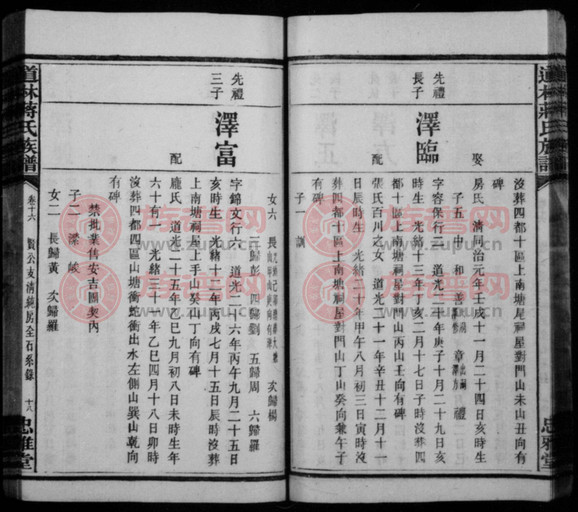 道林蔣氏族譜
忠雅堂
沒葬四都十區上南塘尾祠屋對門山未山丑向有
碑
娶
房氏 清同治元年壬戌十一月二十四日亥時生
子五 中 和 章 禮
先禮
長子
澤臨
字容保行二 道光二十年庚子十月二十九日亥
時生 光緒十三年丁亥二月十七日子時沒葬四
都十區上南塘祠屋對門山丙山壬向有碑
配
張氏百川之女 道光二十一年辛丑十二月十一
日辰時生 光緒二十年甲午八月初三日寅時沒
葬四都十區上南塘祠屋對門山丁山癸向兼午子
有碑
子一 訓
女六 長 次歸楊
歸彭 四歸劉 五歸周 六歸羅
先禮
三子
澤富
字錦文行六 道光二十六年丙午九月二十五日
亥時生 光緒十二年丙戌七月十五日辰時沒葬
上南塘祠屋上手山癸山丁向有碑
配
龐氏 道光二十五年乙巳九月初八日未時生年
六十有一 光緒三十一年乙巳四月十八日卯時
沒葬四都四區山塘衝蛇衝出水左側山巽山乾向
有碑
禁批業售安吉團契內
子二 濼 峻
女二 長歸黃 次歸羅
道林蔣氏族譜
卷十六
賢公支清純房全石系錄
十八
忠雅堂
族譜网
www.zupu.cn
族譜网
www.zupu.cn